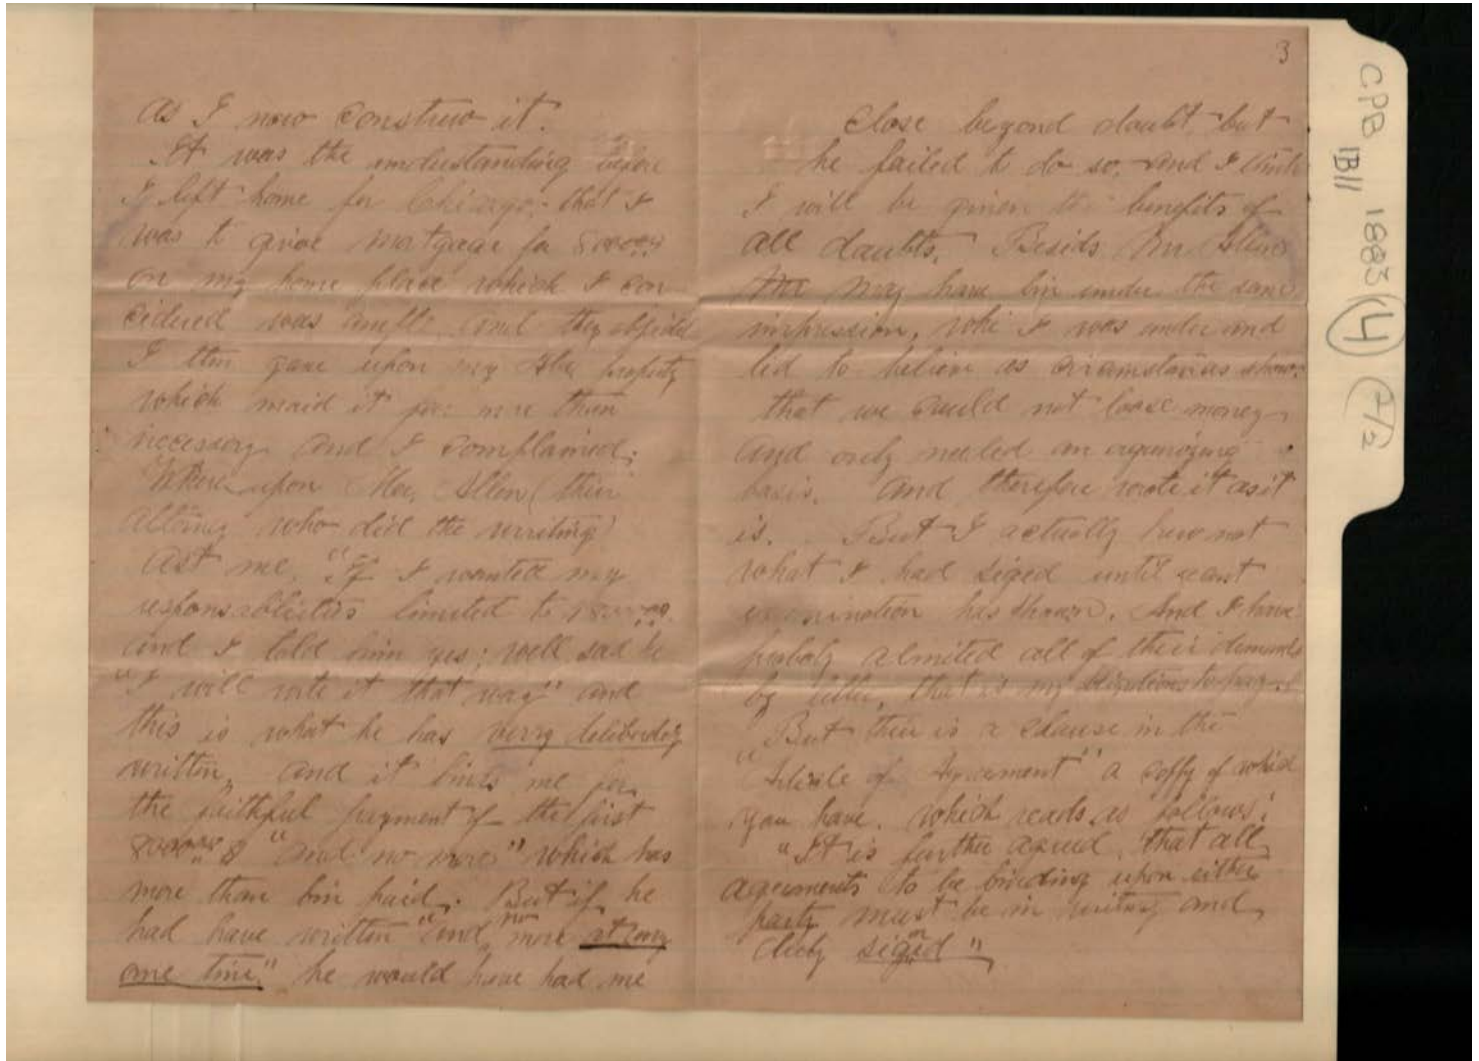 As I now construw it.
It was the understanding before
I left home for Chicago, that I
was to give mortgage for 8000.00
on my home place which I con
cidered was ample, and they objected
I then gave upon my property
which maid it far more than
necessary and I complained;
Whereupon Allen (their
attorny who did the writing)
Ast me, "If I wanted my
responsablieties limited to 8000.00
and I told him yes; well sad he
"I will rite it that way" and
this is what he has verry deliberatly
written, and it binds me for
the faithful payment of the first
8000.00 $ "and no more" which has
more than bin paid. But if he
had have written "and no more at any
one time" he would have had me
3
close beyond doubt, but
he failed to do so, and I think
I will be given the benefits of
all doubts. Besids Mr Allen
may have bin under the same
impression, I was under and
led to believe as circumstances show:
that we could not loose money
and only needed an
basis. And therefore wrote it as it
is. But I actually knew not
what I had siged until
examination has shown. And I have
probaly almited all of their demands
by letter, that is my obligations to pay.
"But their is a clause in the
"Article of Agreement" a coppy of which
you have. Which reads as follows:
"It is further agreed, that all
agreements to be binding upon either
party must be in writing and
duly signed"
CPB
1B11
1883 (4)
2/2